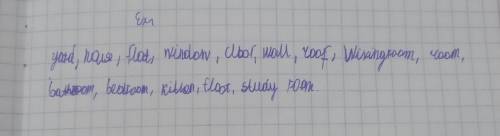 Ex1
yard, house, flat, window, door, wall, roof, livingroom, room,
bathroom, bedroom, kitchen, floor, study room.